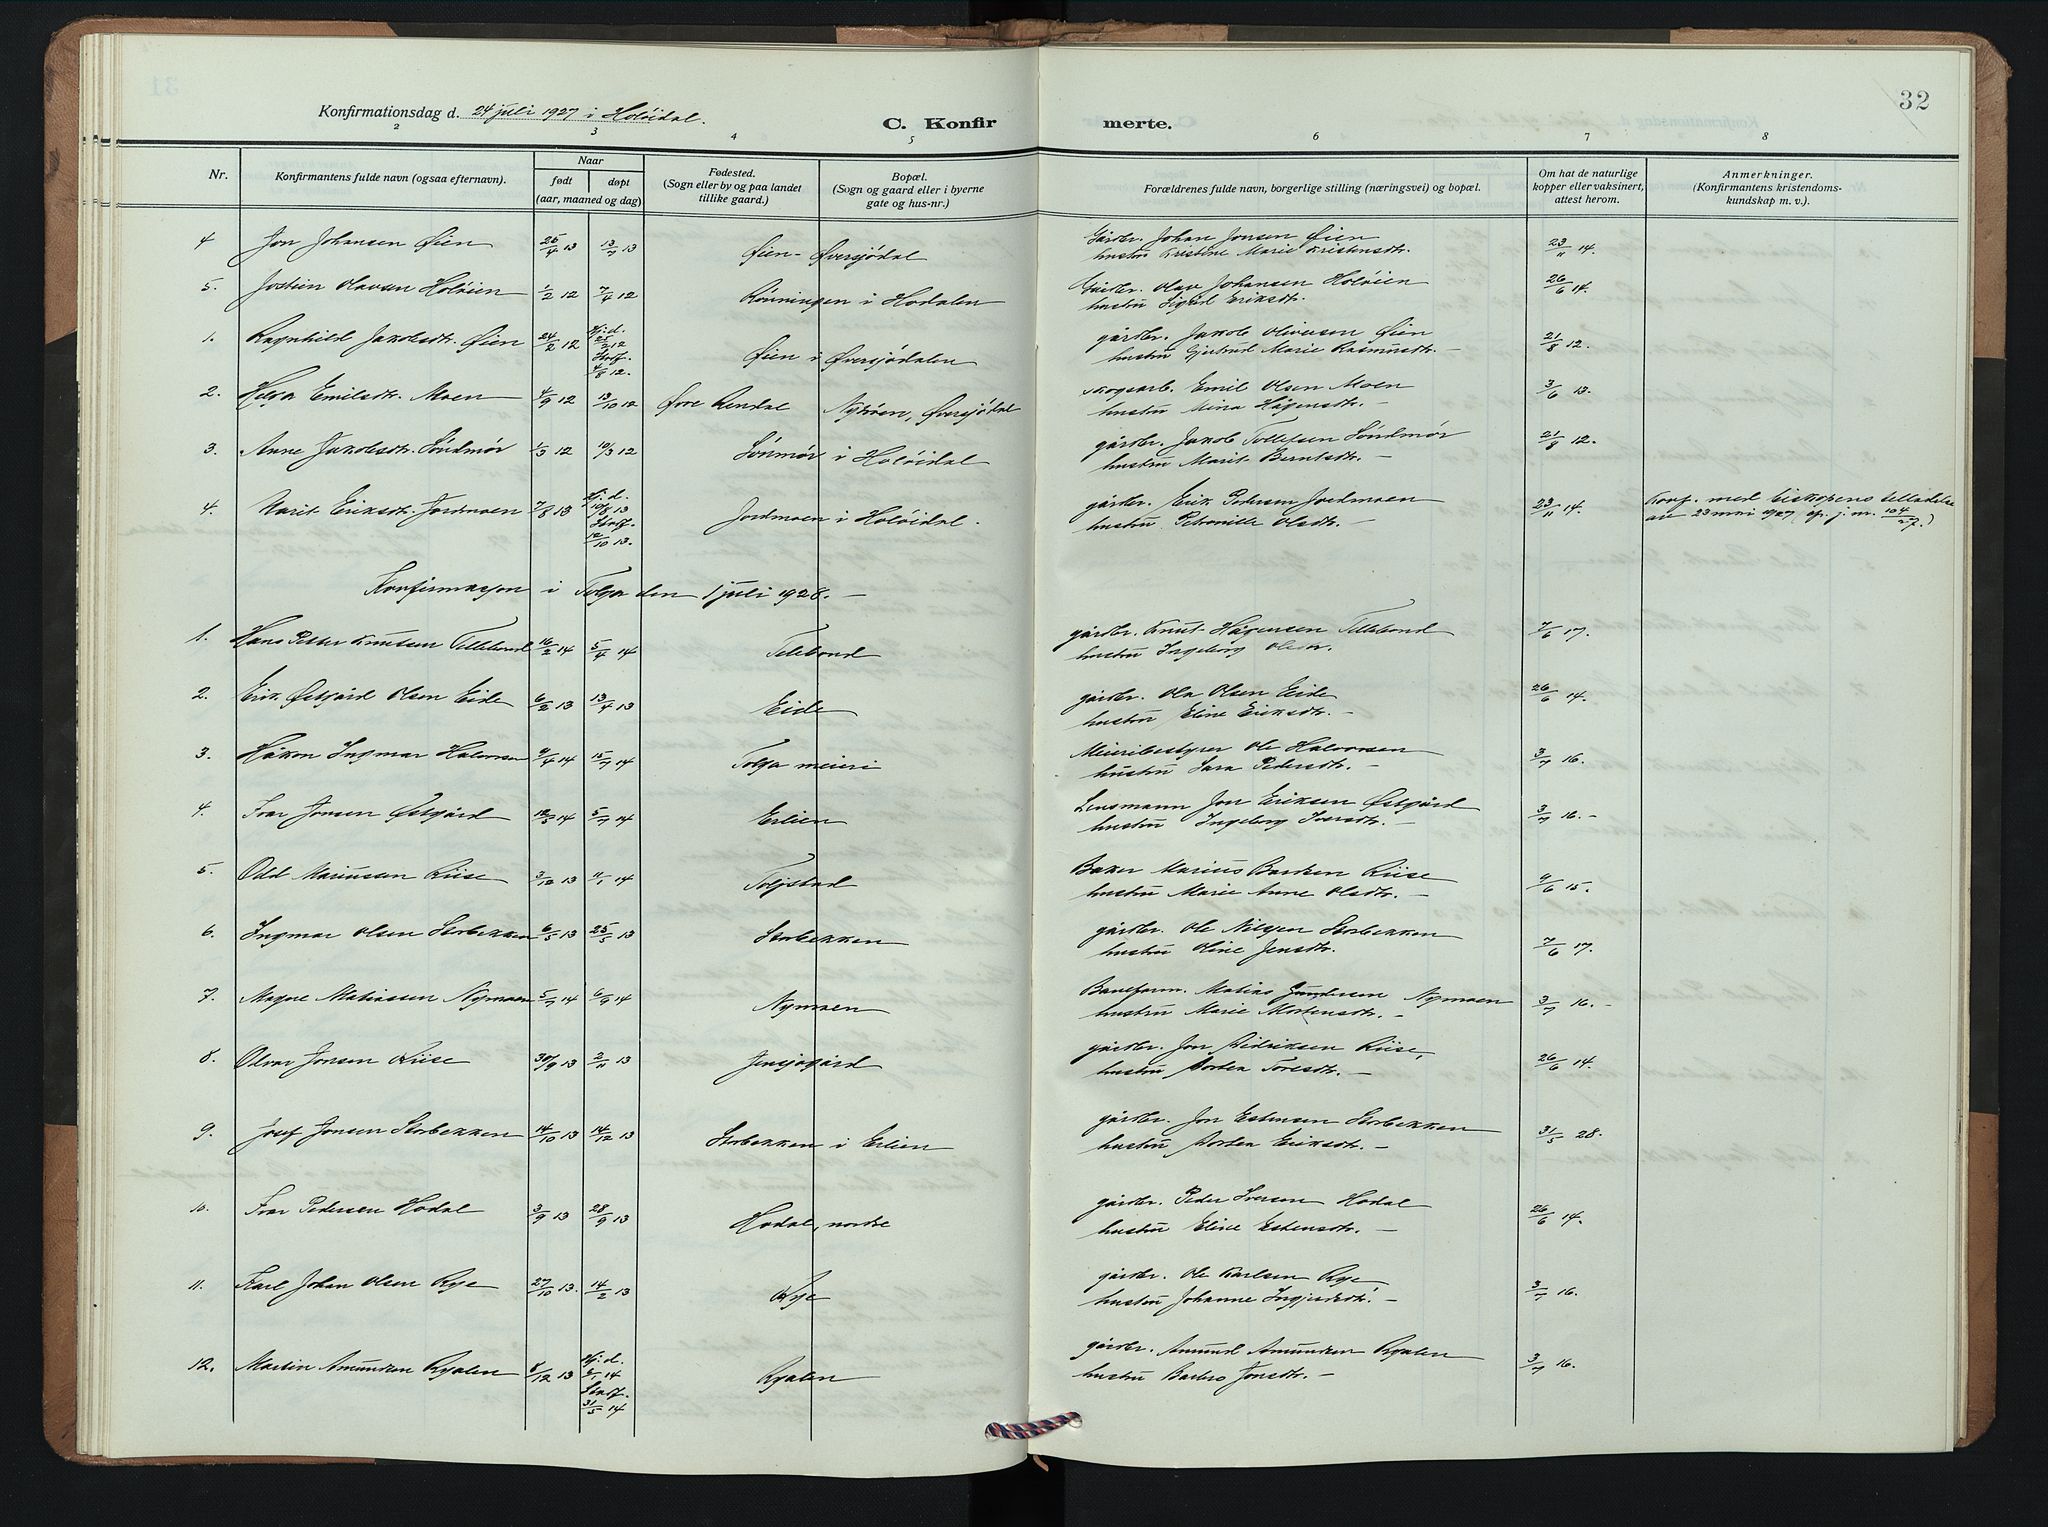 32
Konfirmationsdag d. 24 juli 1927 i Holöidal.
C. Konfirmerte.
2 3 4 5 6 7 8
Nr.
Konfirmantens fulde navn (ogsaa efternavn).
Naar
født døpt
(aar, maaned og dag)
Fødested.
(Sogn eller by og paa landet
tillike gaard.)
Bopæl.
(Sogn og gaard eller i byerne
gate og hus-nr.)
Forældrenes fulde navn, borgerlige stilling (næringsvei) og bopæl.
Om hat de naturlige
kopper eller vaksinert,
attest herom.
Anmerkninger.
(Konfirmantens kristendoms-
kundskap m. v.).
4 Jon Johansen Øien 25/4 13 13/7 13 Øien - Øversjödal Gårdbr. Johan Jonsen Øien 23/11 14.
hustru Kristine Marie Kristensdtr.
5. Jostein Olavsen Holöien 1/2 12 7/4 12 Rönningen i Hodalen Gårdbr. Olav Johansen Holöien 26/6 14.
hustru Sigrid Eriksdtr.
1. Ragnhild Jakobsdtr. Øien 24/2 12 Hj.d. 25/2 12 Stadf. 4/8 12. Øien i Øversjødalen gårdbr. Jakob Olivesen Øien 21/8 12.
hustru Gjertrud Marie Rasmusdtr. -
2. Helga Emilsdtr. Moen 4/9 12 13/10 12 Øvre Rendal Nytröen, Øversjödal skogsarb. Emil Olsen Moen 3/6 13.
hustru Mina Hågensdtr. -
3. Anne Jakobsdtr. Söndmör 1/3 12 10/3 12 Sönmör i Holöidal gårdbr. Jakob Tollefsen Söndmör 21/8 12.
hustru Marit Berntsdtr. -
4. Marit Eriksdtr. Jordmoen 7/8 13 Hj.d. 10/8 13 Stadf. 12/10 13. Jordmoen i Holöidal. gårdbr. Erik Pedersen Jordmoen 23/11 14. Konf. med biskopens tilladelse
hustru Petronille Olsdtr. - av 23 mai 1927 (cfr. j. nr. 104/27.)
Konfirmasjon i Tolga den 1 juli 1928. -
1. Hans Petter Knutsen Tillebond 16/2 14 5/4 14 Telebond gårdbr. Knut Hågensen Tillebond 7/6 17.
hustru Ingeborg Olsdtr.
2. Erik Østgård Olsen Eide 6/2 13 13/4 13 Eide gårdbr. Ola Olsen Eide 26/6 14.
hustru Eline Eriksdtr. -
3. Håkon Ingmar Halvorsen 9/4 14 15/7 14 Tolga meieri Meieribestyrer Ole Halvorsen 3/7 16.
hustru Sara Pedersdtr. -
4. Ivar Jonsen Østgård 12/5 14 5/7 14 Erlien Lensmann Jon Eriksen Østgård 3/7 16. -
hustru Ingeborg Iversdtr. -
5. Odd Mariussen Riise 3/12 13 11/1 14 Toljstad Baker Marius Riise 9/6 15.
hustru Marie Anne Olsdtr. -
6. Ingmar Olsen Storbekken 6/5 13 25/5 13 Storbekken gårdbr. Ole Nilsen Storbekken 7/6 17.
hustru Oline Jensdtr. -
7. Magne Matiassen Nymoen 5/7 14 6/9 14 Nymoen Baneform. Matias Gundersen Nymoen 3/7 16. -
hustru Marie Mortensdtr. -
8. Olvar Jonsen Riise 30/9 13 2/11 13 Jensjogård gårdbr. Jon Didriksen Riise, 26/6 14.
hustru Dortea Toresdtr. -
9. Josef Jonsen Storbekken 14/10 13 14/12 13 Storbekken i Erlien gårdbr. Jon Estensen Storbekken 31/5 28.
hustru Dortea Eriksdtr. -
10. Ivar Pedersen Hodal 3/9 13 28/9 13 Hodal, nordre gårdbr. Peder Iversen Hodal 26/6 14.
hustru Eline Estensdtr. -
11. Karl Johan Olsen Rye 27/10 13. 14/2 13 Rye gårdbr. Ole Karlsen Rye 3/7 16.
hustru Johanne -
12. Martin Amundsen Ryalen 8/12 13 Hj.d. 2/1 14 Stadf. 31/5 14 Ryalen gårdbr. Amund Amundsen Ryalen 3/7 16.
hustru Barbro Jonsdtr. -